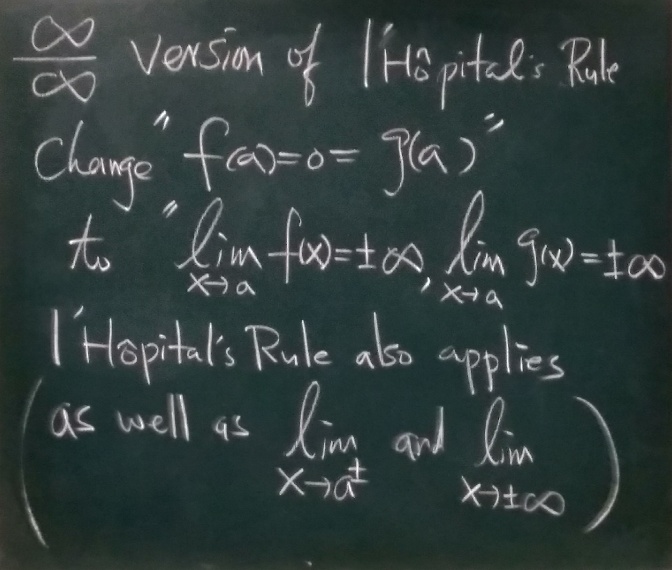 ∞/∞ version of l'Hôpital's Rule
Change "f(a)=0=g(a)"
to "lim x→a f(x)=±∞, lim x→a g(x)=±∞
l'Hôpital's Rule also applies
(as well as lim x→a± and lim x→±∞)